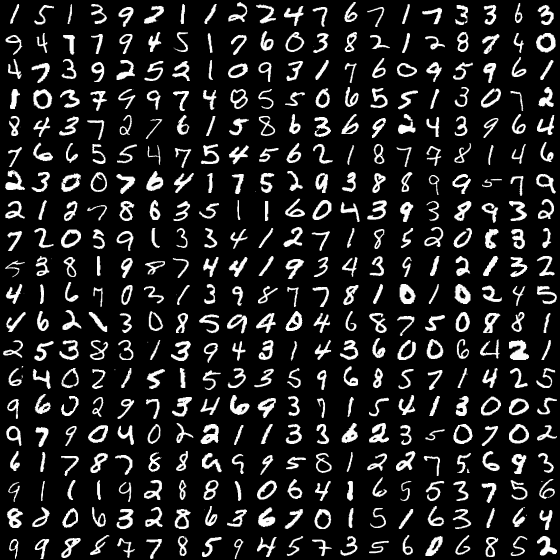 1 5 1 3 9 2 1 1 2 2 4 7 6 7 1 7 3 3 6 3
9 4 7 7 9 4 5 1 7 6 0 3 8 2 1 2 8 7 4 0
4 7 3 9 2 5 2 1 0 9 3 1 7 6 0 9 5 9 6 1
1 0 3 7 9 9 7 4 8 5 5 0 6 5 5 1 3 0 7 2
8 4 3 7 2 7 6 1 5 8 6 3 6 9 2 4 3 9 6 4
7 6 6 5 5 4 7 5 4 5 6 2 1 8 7 7 8 1 4 6
2 3 0 0 7 6 4 1 7 5 2 9 3 8 8 9 9 5 7 9
2 1 2 7 8 6 3 5 1 1 6 0 4 3 9 3 8 9 3 2
7 2 0 5 9 1 3 3 4 1 2 7 1 8 5 2 0 8 3 2
5 3 8 1 9 8 7 4 4 1 9 3 4 3 9 1 2 1 3 2
4 1 6 7 0 3 1 3 9 8 7 7 8 1 0 1 0 2 4 5
4 6 2 1 3 0 8 5 9 4 0 4 6 8 7 5 0 8 8 1
2 5 3 8 3 1 3 9 4 3 1 4 3 6 0 0 6 4 2 1
6 4 0 2 1 5 1 5 3 3 5 9 6 8 5 7 1 4 2 5
9 6 0 2 9 7 3 4 6 9 3 7 1 5 4 1 3 0 0 5
9 7 9 0 4 0 2 2 1 1 3 3 6 2 3 5 0 7 0 2
6 1 7 8 7 8 8 9 9 9 5 8 1 2 2 7 5 6 9 3
9 1 1 1 9 2 8 8 1 0 6 4 1 6 5 5 3 7 5 6
8 2 0 6 3 2 8 6 3 6 7 0 1 5 1 6 3 1 6 4
9 9 8 8 7 7 8 5 9 4 5 7 3 5 6 0 6 8 5 2